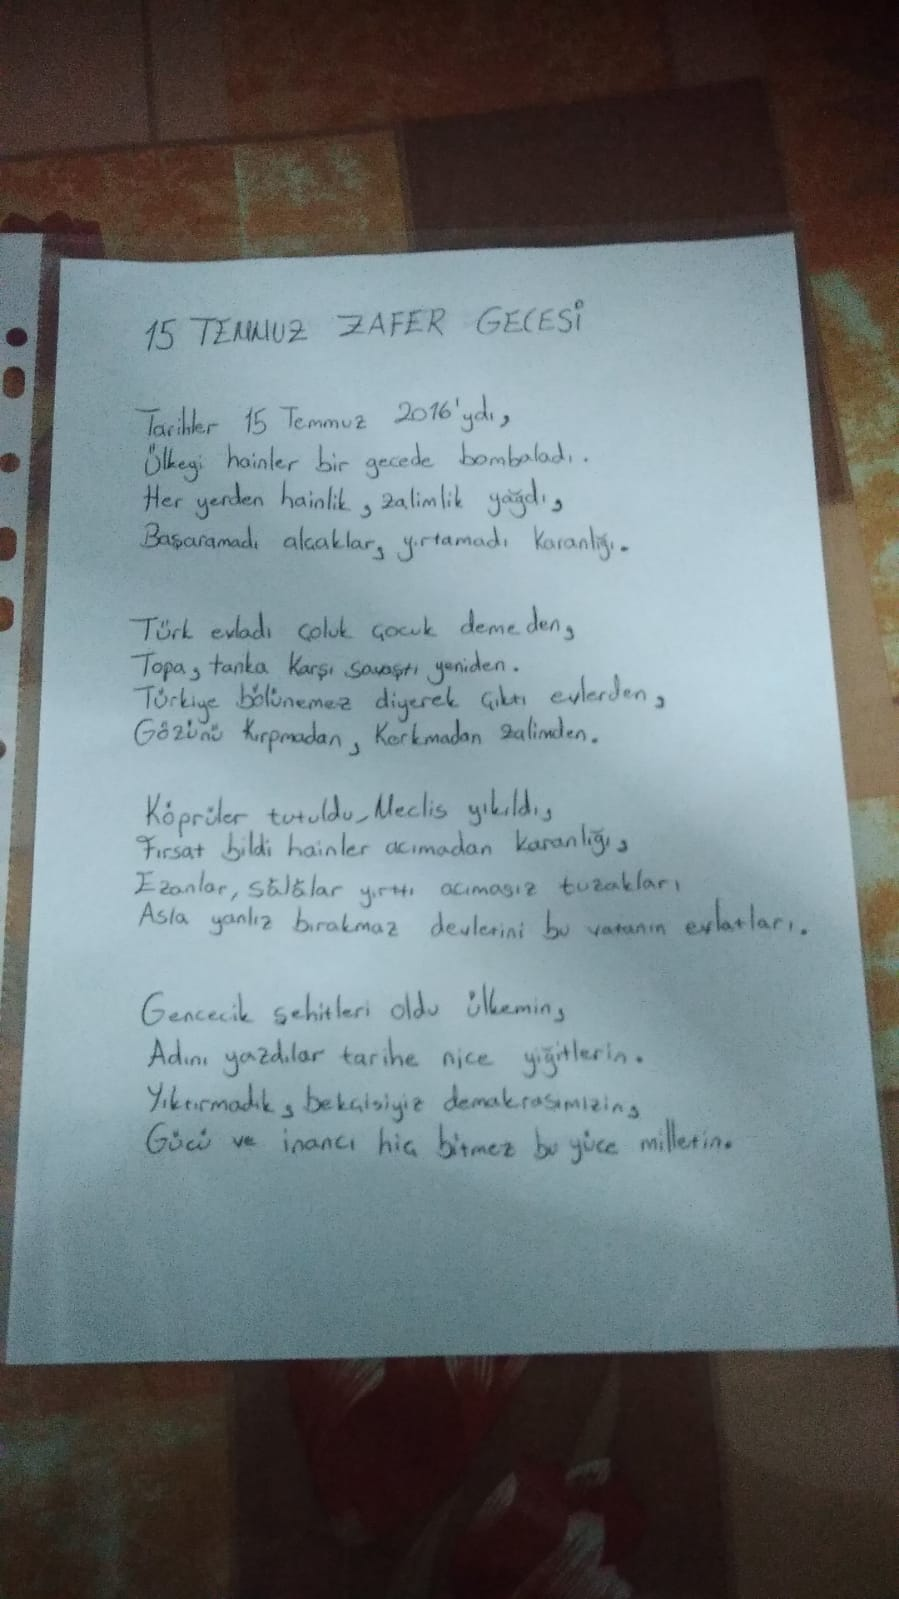 15 TEMMUZ ZAFER GECESİ
Tarihler 15 Temmuz 2016'ydı,
Ülkeyi hainler bir gecede bombaladı.
Her yerden hainlik, zalimlik yağdı,
Başaramadı alçaklar, yırtamadı karanlığı.
Türk evladı çoluk çocuk demeden,
Topa, tanka karşı savaştı yeniden.
Türkiye bölünemez diyerek çıktı evlerden,
Gözünü kırpmadan, korkmadan zalimden.
Köprüler tutuldu, Meclis yıkıldı,
Fırsat bildi hainler acımadan karanlığı,
Ezanlar, sâlâlar yırttı acımasız tuzakları
Asla yanlız bırakmaz devlerini bu vatanın evlatları.
Gencecik şehitleri oldu ülkemin,
Adını yazdılar tarihe nice yiğitlerin.
Yıktırmadık, bekçisiyiz demakrasimizin,
Gücü ve inancı hiç bitmez bu yüce milletin.